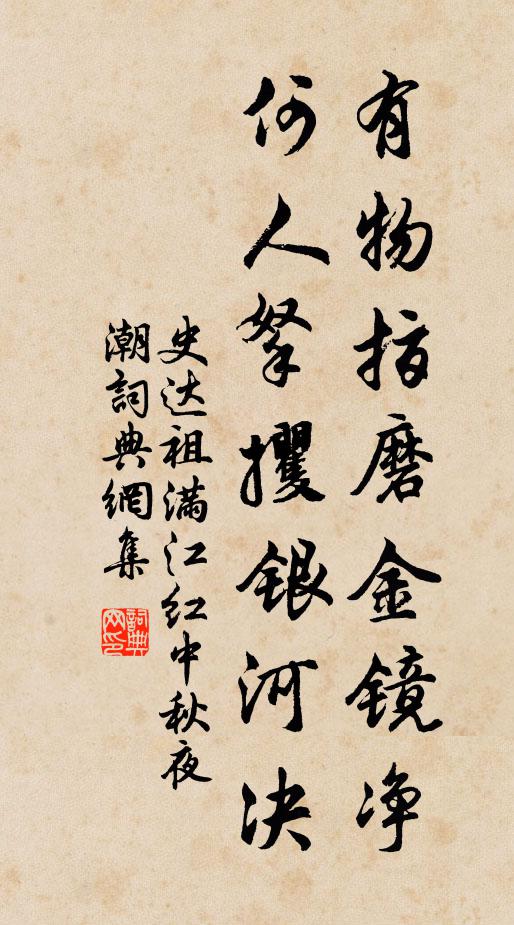 有物指磨金镜净
何人拏攫銀河決
史达祖滿江红中秋夜
潮詞典網集
詞典网印